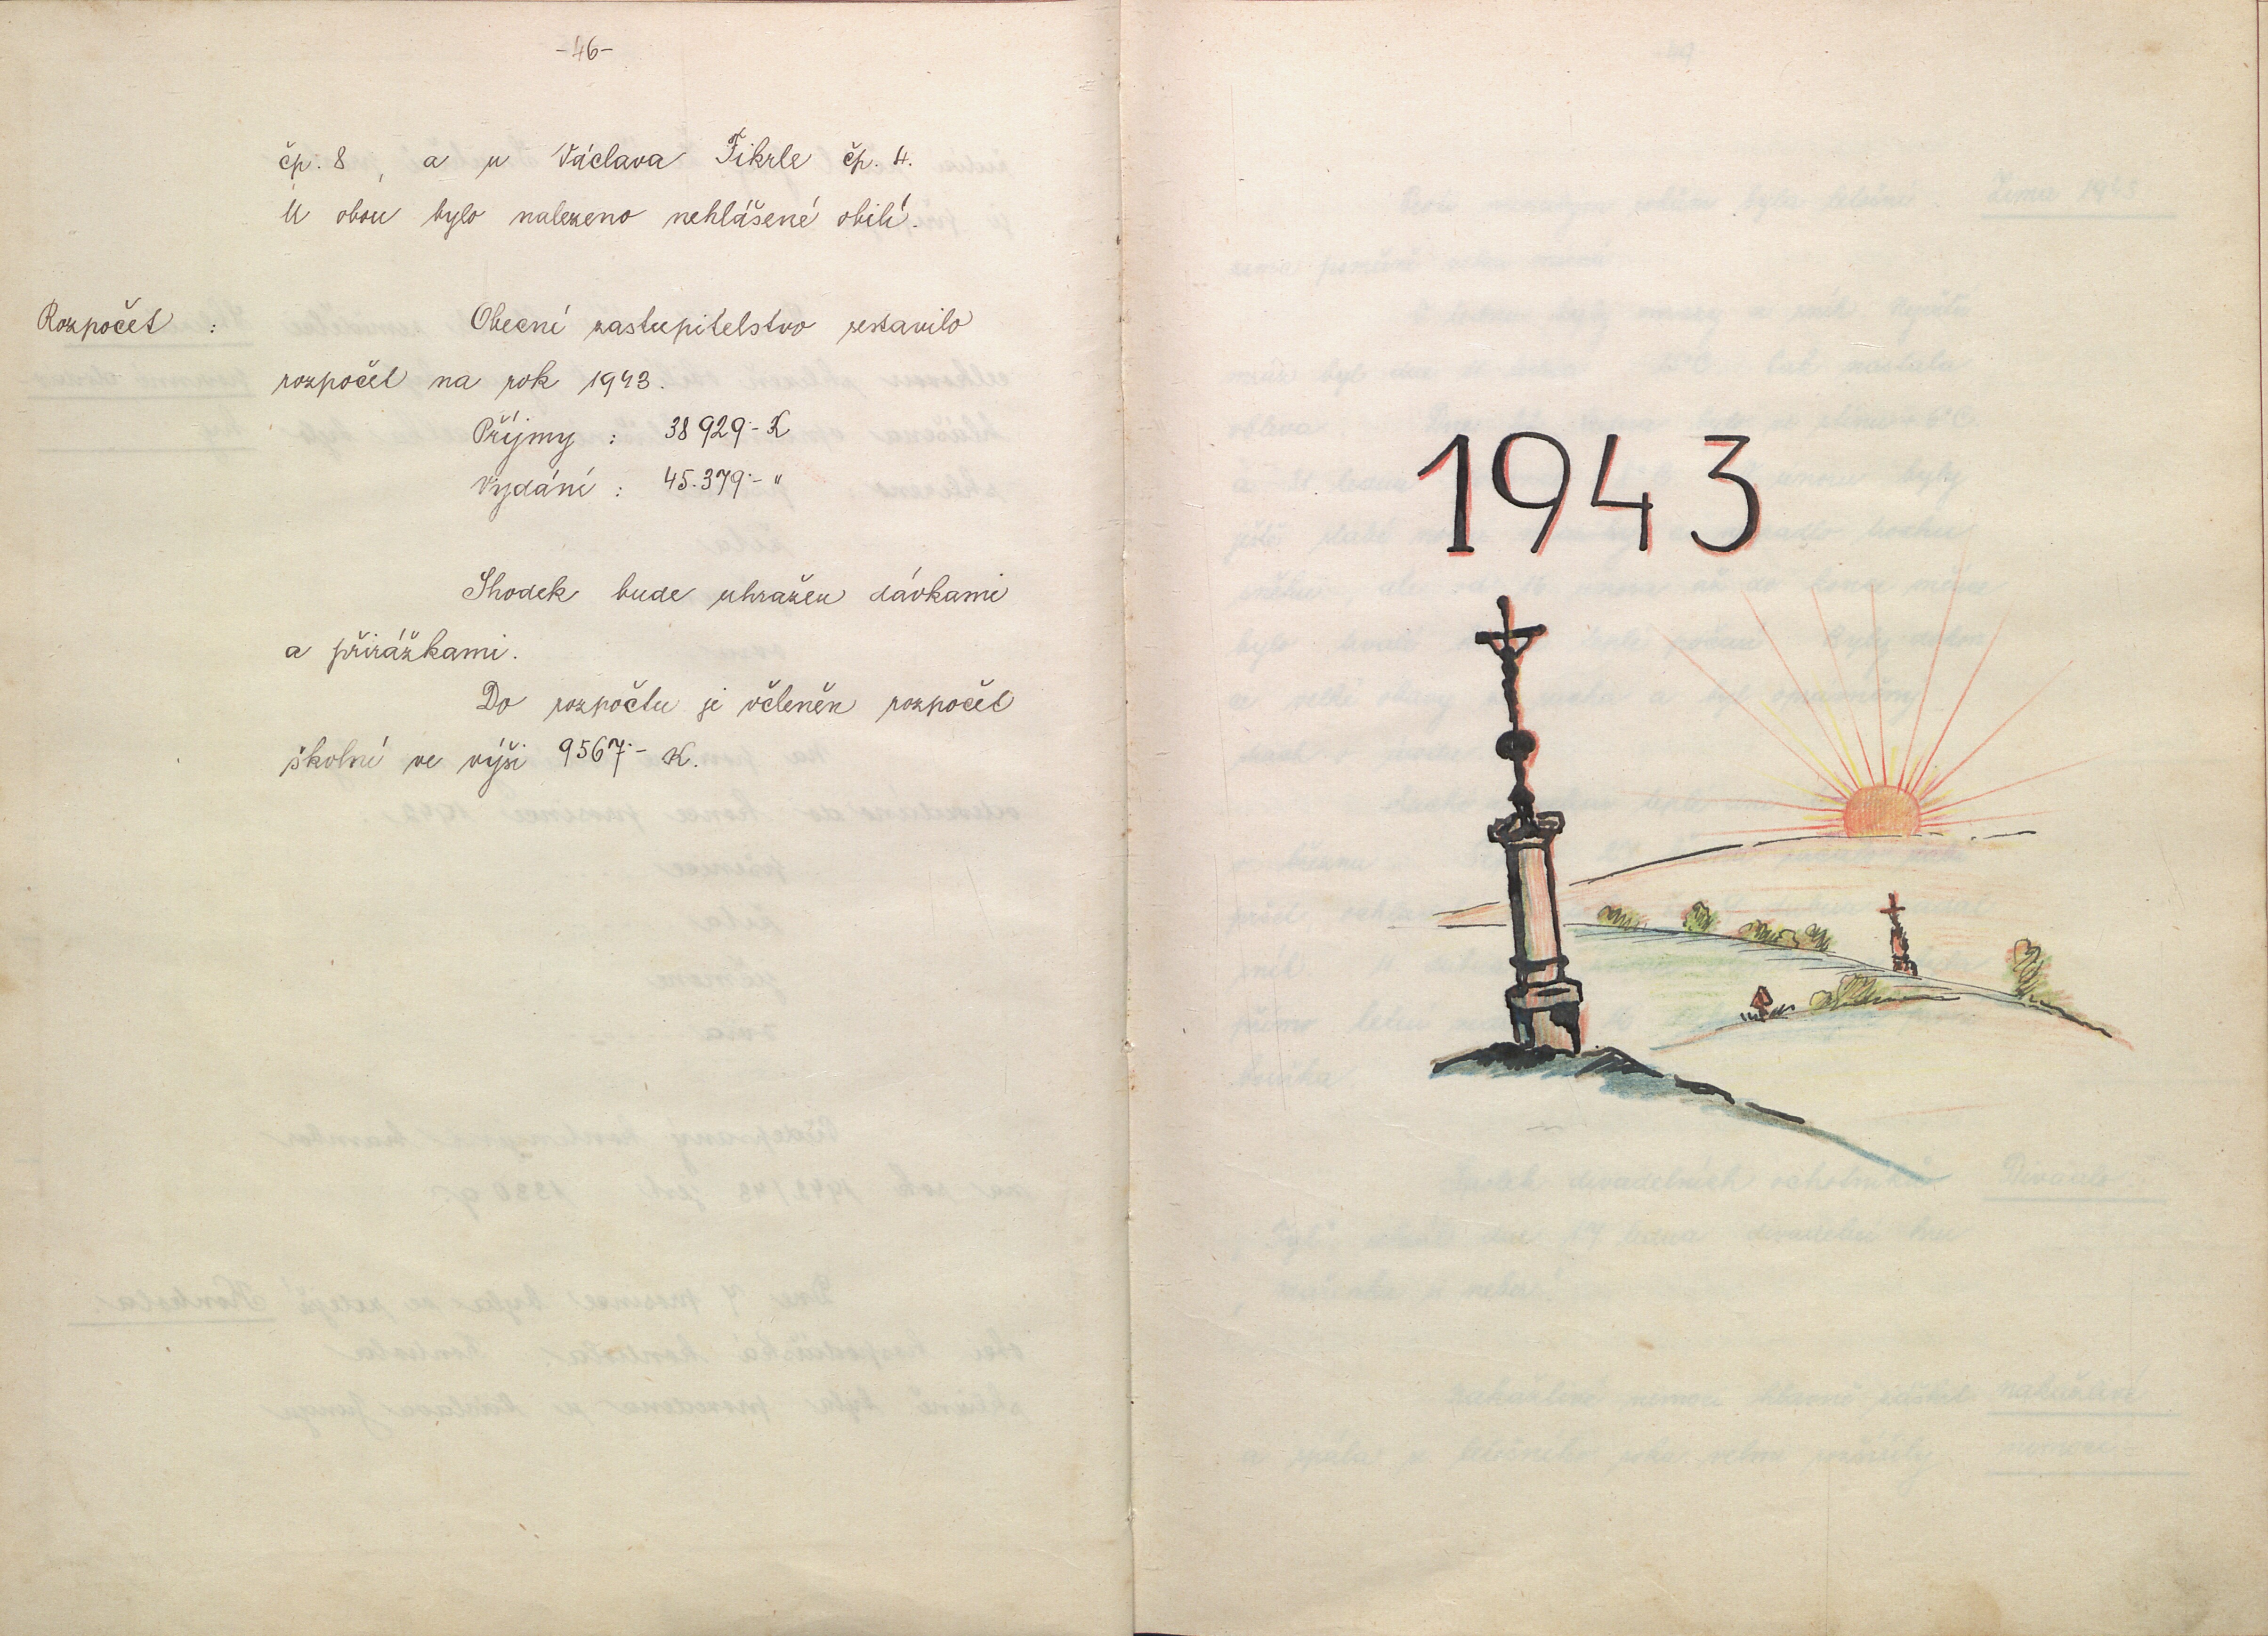 -46-
čp. 8, a u Václava Fikrle čp. 4.
U obou bylo nalezeno nehlášené obilí.
Rozpočet : Obecní zastupitelstvo sestavilo
rozpočet na rok 1943.
Příjmy : 38 929·- K
Vydání : 45.379·- "
Shodek bude uhražen dávkami
a přirážkami.
Do rozpočtu je včleněn rozpočet
školní ve výši 9567·- K.
1943